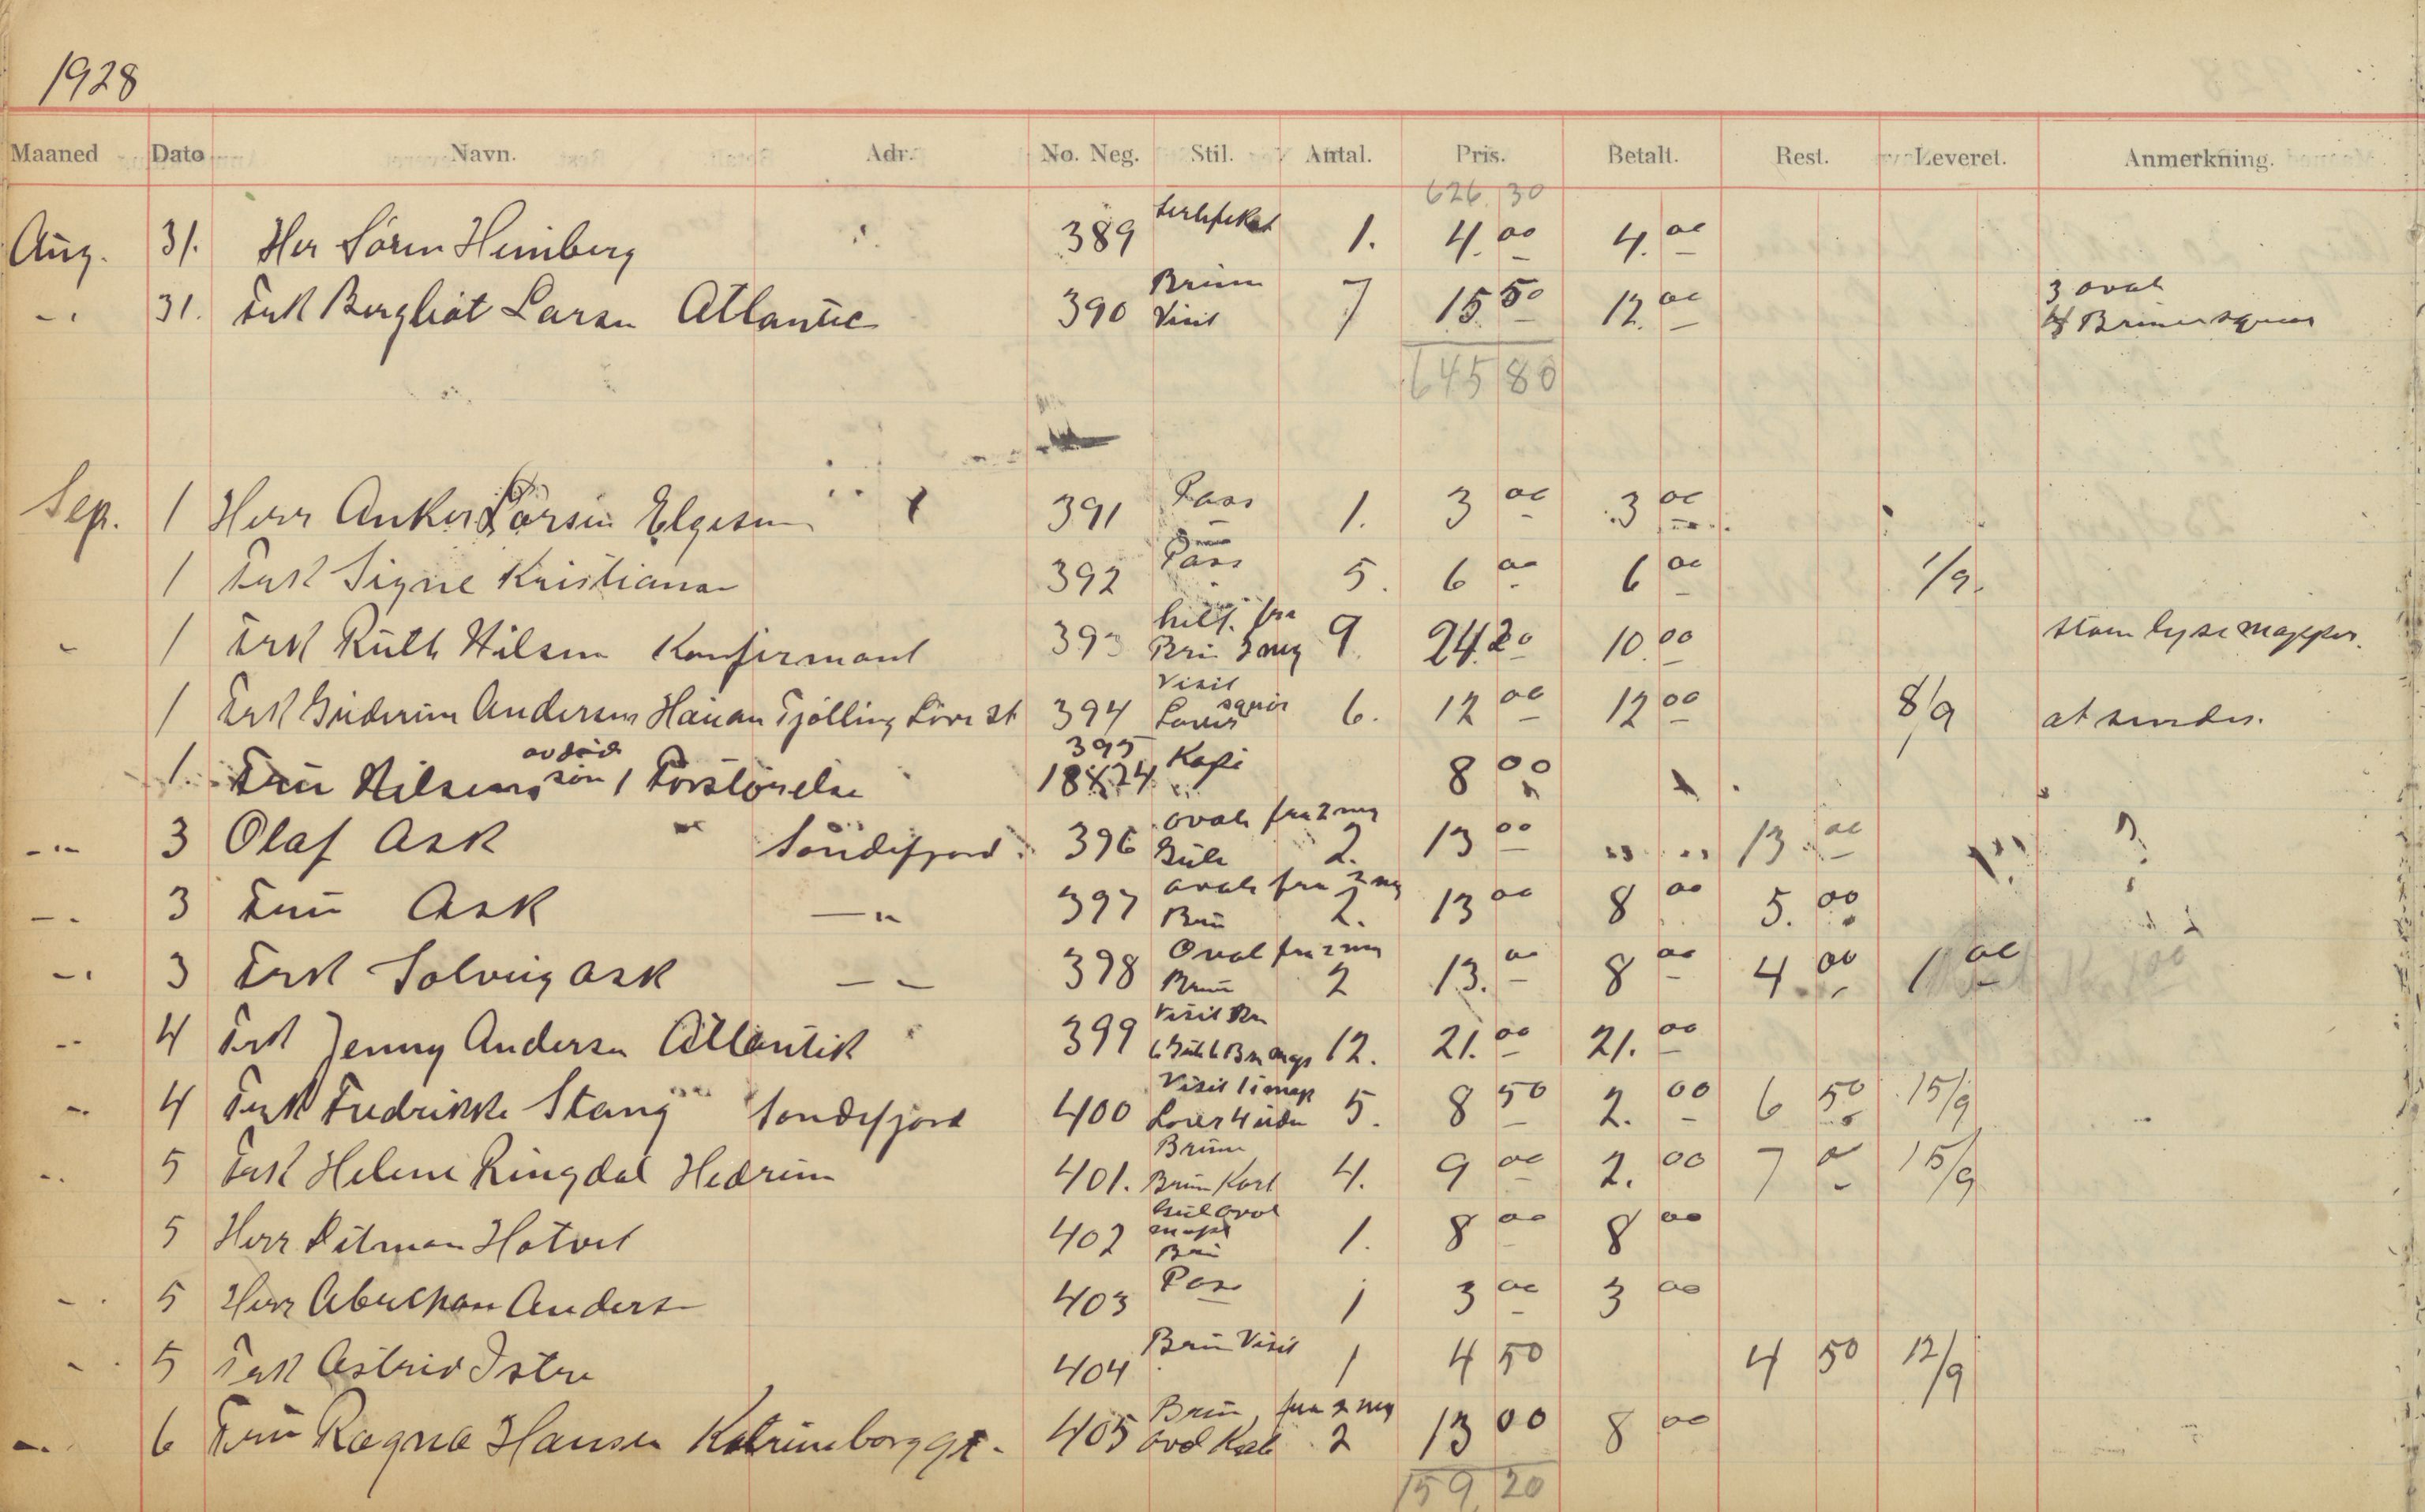 1928
Maaned Dato Navn. Adr. No. Neg. Stil. Antal. Pris. Betalt. Rest. Leveret. Anmerkning.
626 30
Aug. 31. Her Sören Heimberg 389 Sertifikat 1. 4.00 4.00
31. Frk Bergliot Larsen Atlantic 390 Brun Visit 7 15.50 12.00 3 oval
645 80
Sep. 1 Herr Anker Larsen Elgesem 391 Pass 1. 3 00 3 00
1 Frk Signe Kristiansen 392 Pass 5. 6 00 6 00 1/9.
1 Frk Ruth Nilsen Konfirmant 393 9 24.20 10.00
1 Frk Anderson Haugan Tjölling 394 Visit 6. 12 00 12 00 8/9 at sendes.
1. Fru Nilsens avdöd sön / Forstörrelse 395 Kopi 8 00
3 Olaf Ask Sandefjord 396 ovale fra 2 neg Gule 2. 13 00 13 00
3 Fru Ask -"- 397 ovale fra 2 neg Brun 2. 13 00 8 00 5.00
3 Frk Solveig Ask - - 398 Oval fra 2 neg Brun 2 13.00 8 00 4 00 1 00
4 Frk Jenny Andersen Atlantik 399 Visit 12. 21.00 21.00
4 Frk Fredrikke Stang Sandefjord 400 Visit 1 i map 5. 8 50 2.00 6 50 15/9
5 Frk Helene Ringdal Hedrum 401. Brun Brun Kort 4. 9 00 2.00 7 00 15/9
5 Herr Ditman Hotvet 402 Gul Oval mape Brun 1. 8 00 8 00
5 Herr Anders 403 Pass 1 3 00 3 00
5 Frk Astrid Istre 404 Brun Visit 1 4 50 4 50 12/9
6 Fru Ragna Hansen Katrineborg gt. 405 Brun, fra 2 neg 2 13 00 8 00
159,20